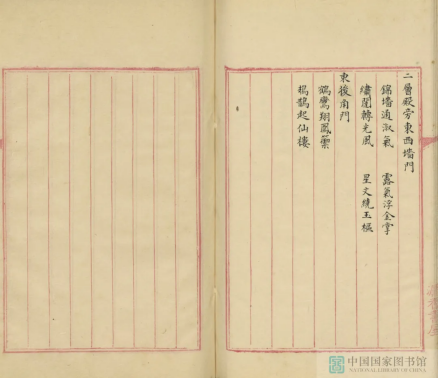 二層殿旁東西墻門
錦墻通淑氣 露氣浮金掌
繡闥轉光風 星文繞玉樞
東後南門
鵷鸞翔鳳藻
鳷鵲起仙樓
中国国家图书馆
NATIONAL LIBRARY OF CHINA